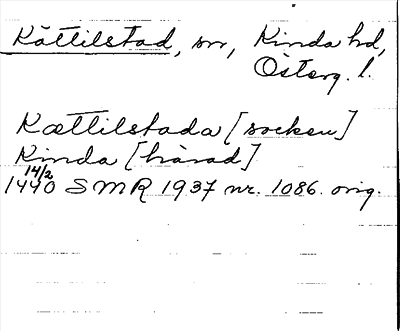 Kättilstad, sn, Kinda hd,
Österg. l.
Kættilstada [socken]
Kinda [härad]
14/2
1440 SMR 1937 nr. 1086. orig.